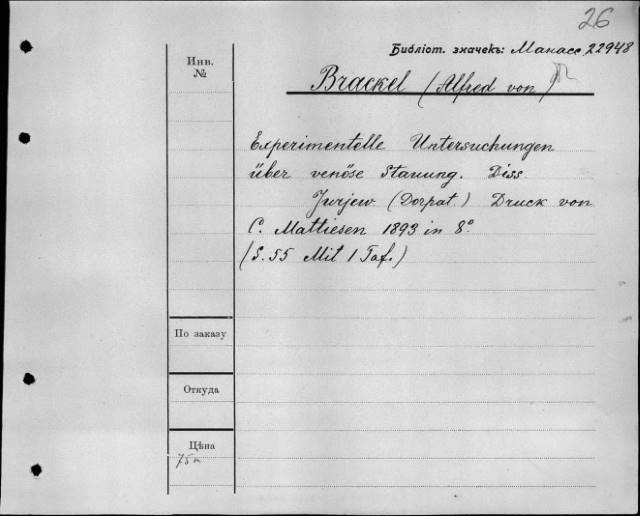 26
Библіот. значекъ: Манасс. 22948
Инв.
№
Brackel (Alfred von)
Experimentelle Untersuchungen
über venöse Stauung. Diss
Jurjew (Dorpat.) Druck von
C. Mattiesen 1893 in 8°.
(S. 55 Mit 1 Taf.)
По заказу
Откуда
Цѣна
75к